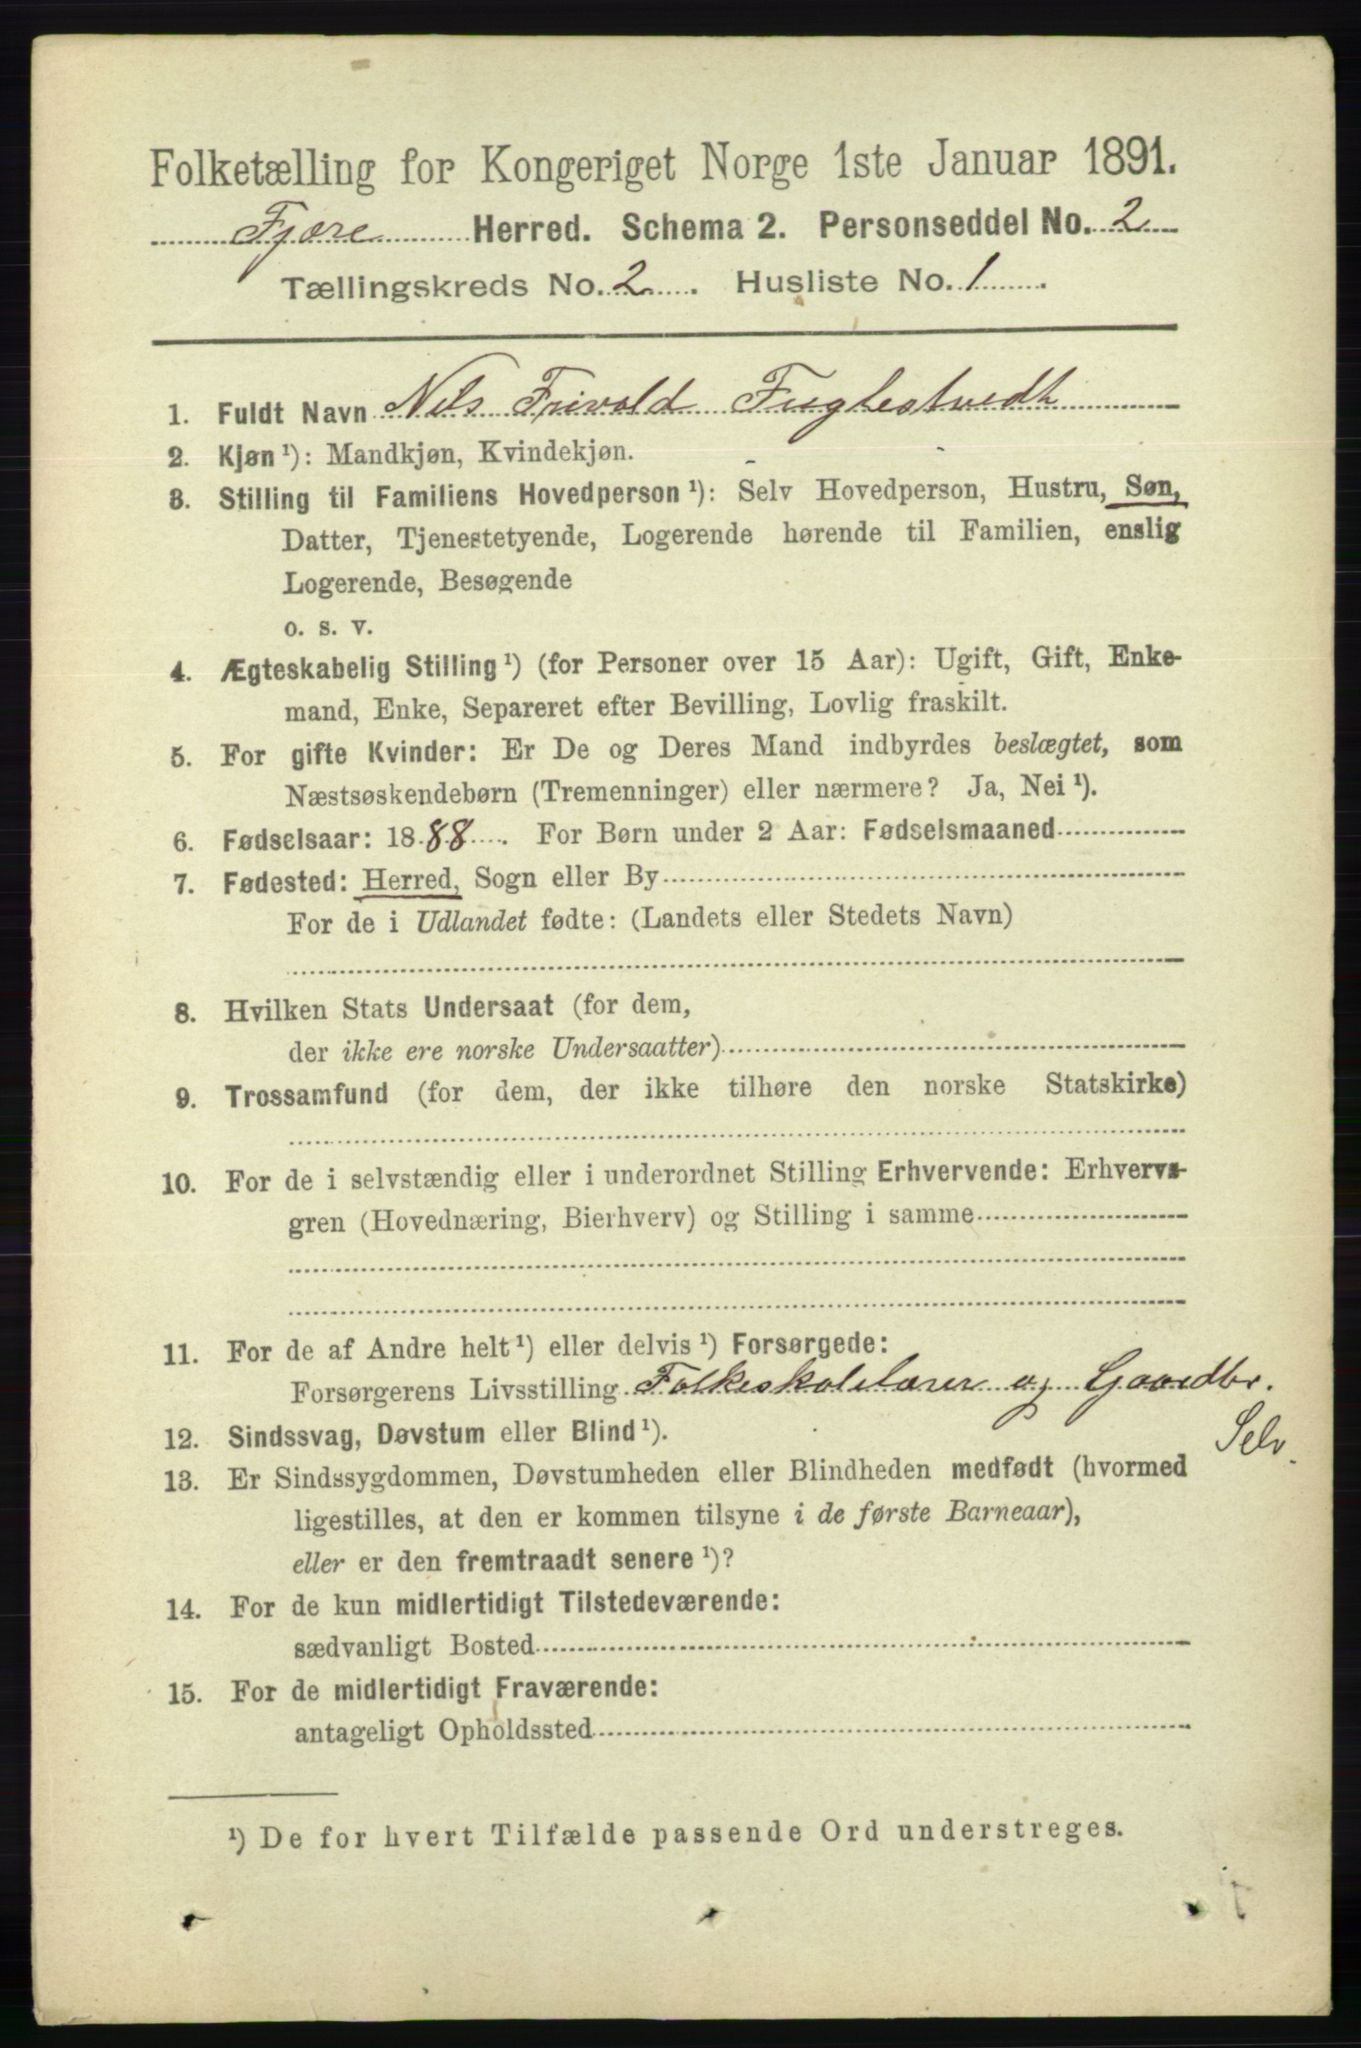 Folketælling for Kongeriget Norge 1ste Januar 1891.
Fjære Herred. Schema 2. Personseddel No. 2
Tællingskreds No. 2. Husliste No. 1.
1. Fuldt Navn Nils Trivold Fuglestvedt
2. Kjøn ¹): Mandkjøn, Kvindekjøn.
3. Stilling til Familiens Hovedperson ¹): Selv Hovedperson, Hustru, Søn,
Datter, Tjenestetyende, Logerende hørende til Familien, enslig
Logerende, Besøgende
o. s. v.
4. Ægteskabelig Stilling ¹) (for Personer over 15 Aar): Ugift, Gift, Enke-
mand, Enke, Separeret efter Bevilling, Lovlig fraskilt.
5. For gifte Kvinder: Er De og Deres Mand indbyrdes beslægtet, som
Næstsøskendebørn (Tremenninger) eller nærmere? Ja, Nei ¹).
6. Fødselsaar: 1888. For Børn under 2 Aar: Fødselsmaaned
7. Fødested: Herred, Sogn eller By
For de i Udlandet fødte: (Landets eller Stedets Navn)
8. Hvilken Stats Undersaat (for dem,
der ikke ere norske Undersaatter)
9. Trossamfund (for dem, der ikke tilhøre den norske Statskirke)
10. For de i selvstændig eller i underordnet Stilling Erhvervende: Erhvervs-
gren (Hovednæring, Bierhverv) og Stilling i samme
11. For de af Andre helt ¹) eller delvis ¹) Forsørgede:
Forsørgerens Livsstilling Folkeskolelærer og Gaardbr.
Selv.
12. Sindssvag, Døvstum eller Blind ¹).
13. Er Sindssygdommen, Døvstumheden eller Blindheden medfødt (hvormed
ligestilles, at den er kommen tilsyne i de første Barneaar),
eller er den fremtraadt senere ¹)?
14. For de kun midlertidigt Tilstedeværende:
sædvanligt Bosted
15. For de midlertidigt Fraværende:
antageligt Opholdssted
¹) De for hvert Tilfælde passende Ord understreges.